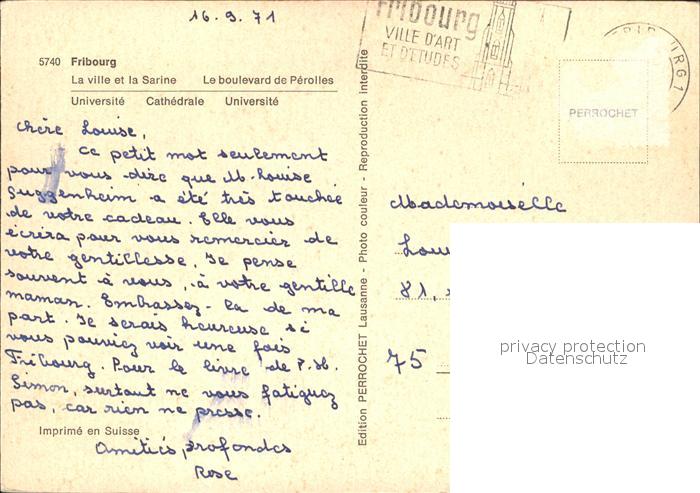 16.9.71
Fribourg
VILLE D'ART
ET D'ÉTUDES
5740 Fribourg
La ville et la Sarine Le boulevard de Pérolles
Université Cathédrale Université
Chère Louise,
Ce petit mot seulement
pour vous dire que M. Louise
Guggenheim a été très touchée
de votre cadeau. Elle vous
écrira pour vous remercier de
votre gentillesse. Je pense
souvent à vous, à votre gentille
maman. Embrassez-la de ma
part. Je serais heureuse si
vous pouviez voir une fois
Fribourg. Pour le livre de P. H.
Simon, surtout ne vous fatiguez
pas, car rien ne presse.
Amitiés profondes
Rose
Imprimé en Suisse
Edition PERROCHET Lausanne - Photo couleur - Reproduction interdite
PERROCHET
Mademoiselle
81,
75
privacy protection
Datenschutz